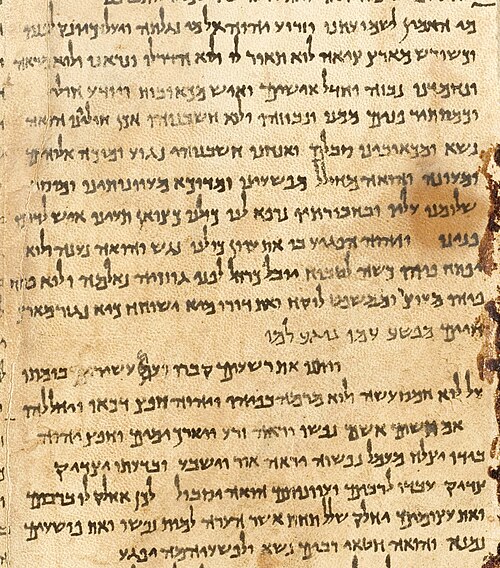 מי האמין לשמועתנו וזרוע יהוה אל מי נגלתה ויעל כיונק לפניו
וכשורש מארץ ציה לוא תאר לו ולוא הדר לו ונראנו ולוא מראה
ונחמדנו נבזה וחדל אישים ואיש מכאובות ויודע חולי
וכמסתיר פנים ממנו ונבוזהו ולוא חשבנוהו אכן חוליינו הואה
נשא ומכאובינו סבלם ואנחנו חשבנוהו נגוע ומוכה אלוהים
ומעונה והואה מחולל מפשעינו ומדוכא מעוונותינו ומוסר
שלומנו עליו ובחבורתיו נרפא לנו כולנו כצואן תעינו איש לדרכו
פנינו ויהוה הפגיע בו את עוון כולנו נגש והואה נענה ולוא
פתח פיהו כשה לטבוח יובל כרחל לפני גוזזיה נאלמה ולוא פתח
פיהו מעוצר וממשפט לוקח ואת דורו מיא ישוחח כיא נגזר מארץ
חיים מפשע עמו נוגע למו
ויתנו את רשעים קברו ועם עשירים בומתו
על לוא חמס עשה ולוא מרמה בפיהו ויהוה חפץ דכאו ויחללהו
אם תשים אשם נפשו יראה זרע ויארך ימים וחפץ יהוה
בידו יצלח מעמל נפשוה יראה אור וישבע ובדעתו יצדיק
צדיק עבדו לרבים ועוונותם הואה יסבול לכן אחלק לו ברבים
ואת עצומים יחלק שלל תחת אשר הערה למות נפשו ואת פושעים
נמנה והואה חטאי רבים נשא ולפשעיהמה יפגע